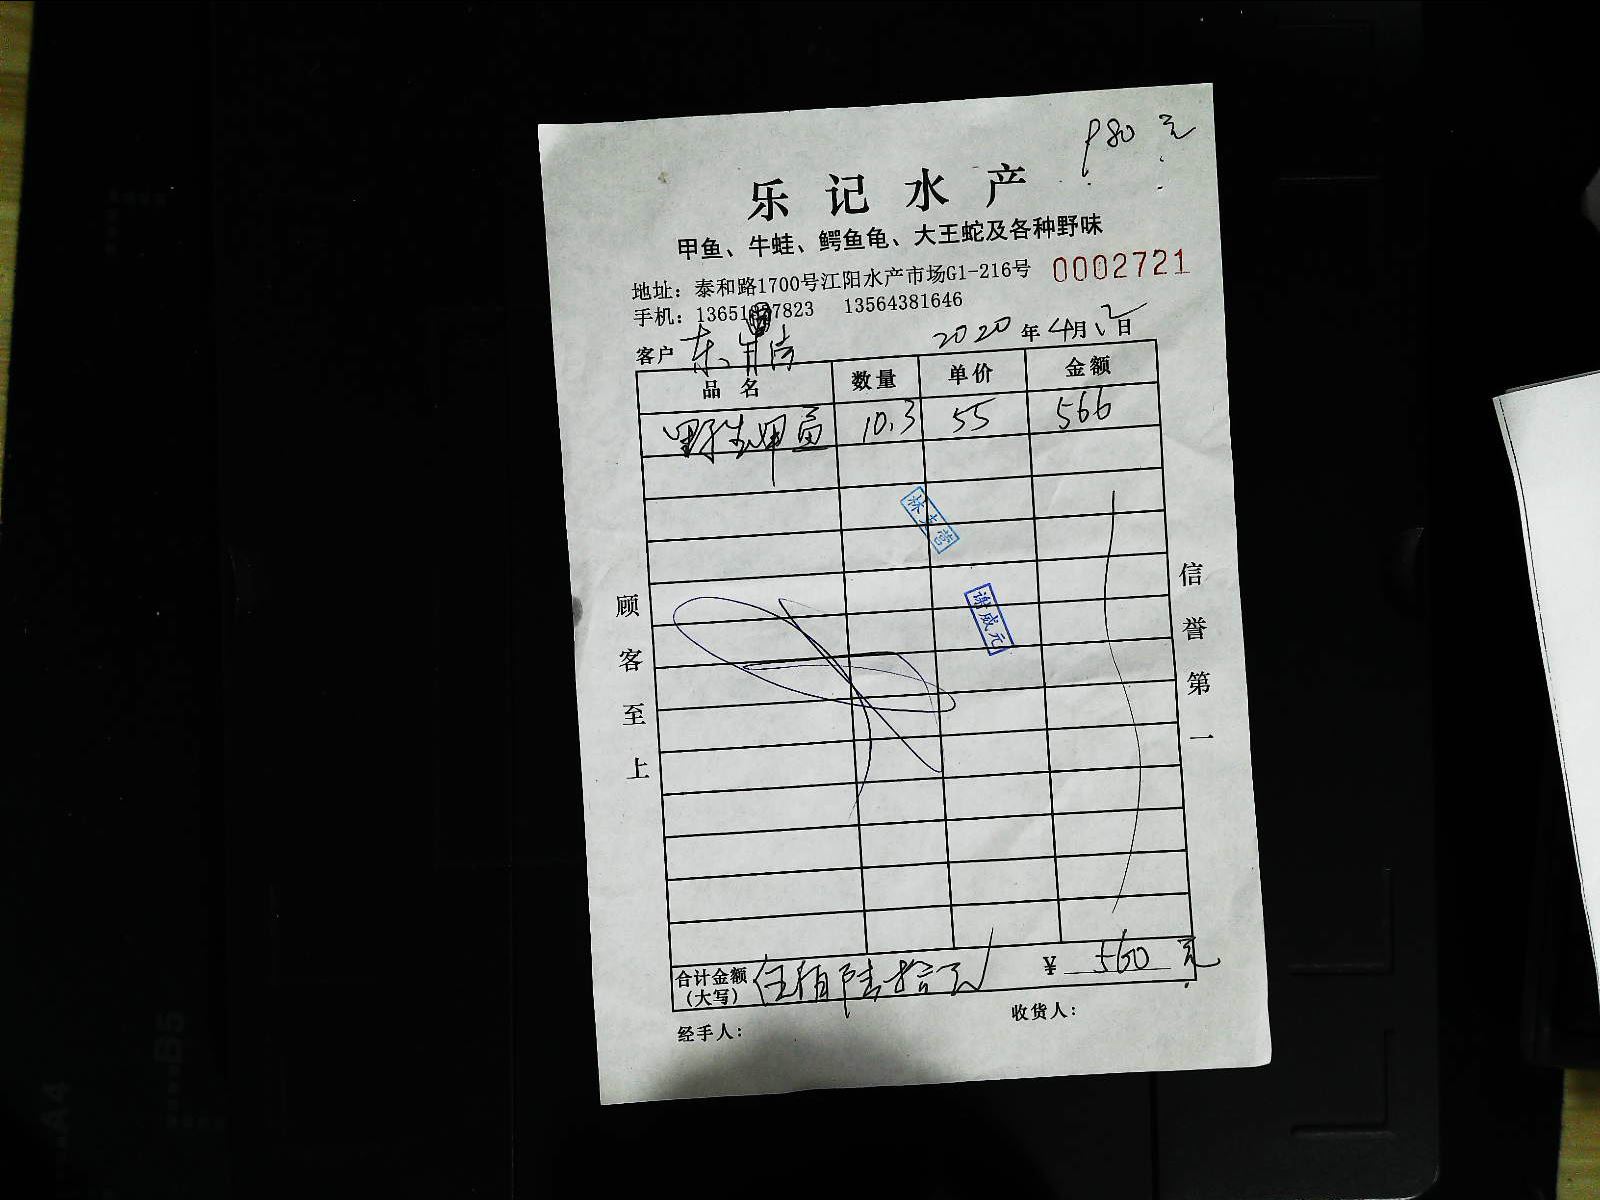 80元
乐记水产
甲鱼、牛蛙、鳄鱼龟、大王蛇及各种野味
地址：泰和路1700号江阳水产市场G1-216号
0002721
手机：13651 7823 13564381646
客户 东
2020年4月12日
品名 数量 单价 金额
野生甲鱼 10.3 55 566
林
谢威元
顾客至上
信誉第一
合计金额（大写） 伍佰陆拾元 ¥560元
经手人：
收货人：